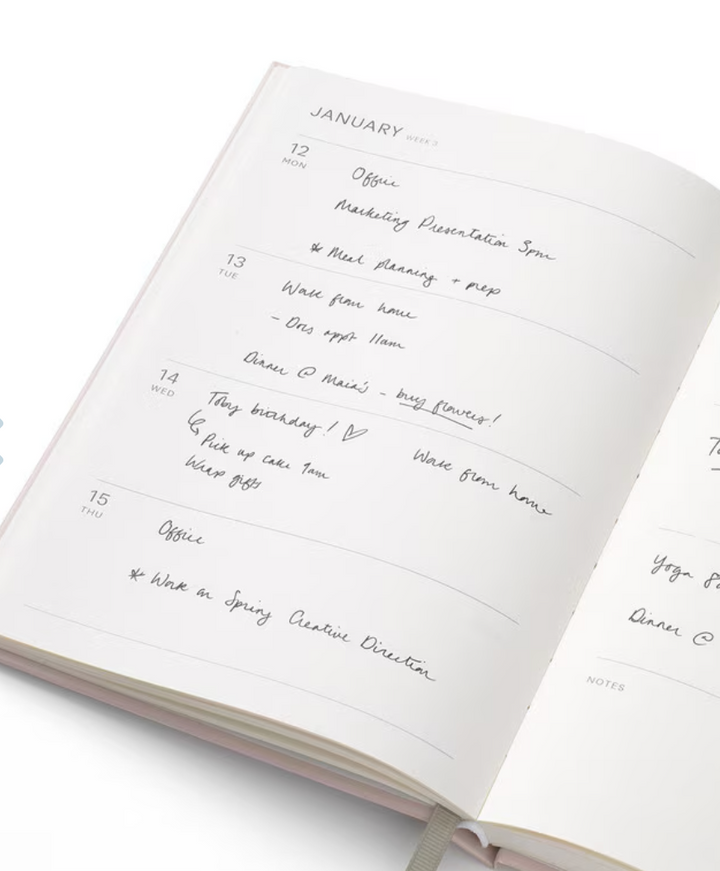 JANUARY WEEK 3
12
MON
Office
Marketing Presentation 3pm
* Meal planning + prep
13
TUE
Work from home
- Docs appt 11am
Dinner @ Maia's - buy flowers!
14
WED
Toby birthday! ♡
Work from home
Pick up cake 9am
Wrap gifts
15
THU
Office
* Work on Spring Creative Direction
Yoga
Dinner @
NOTES